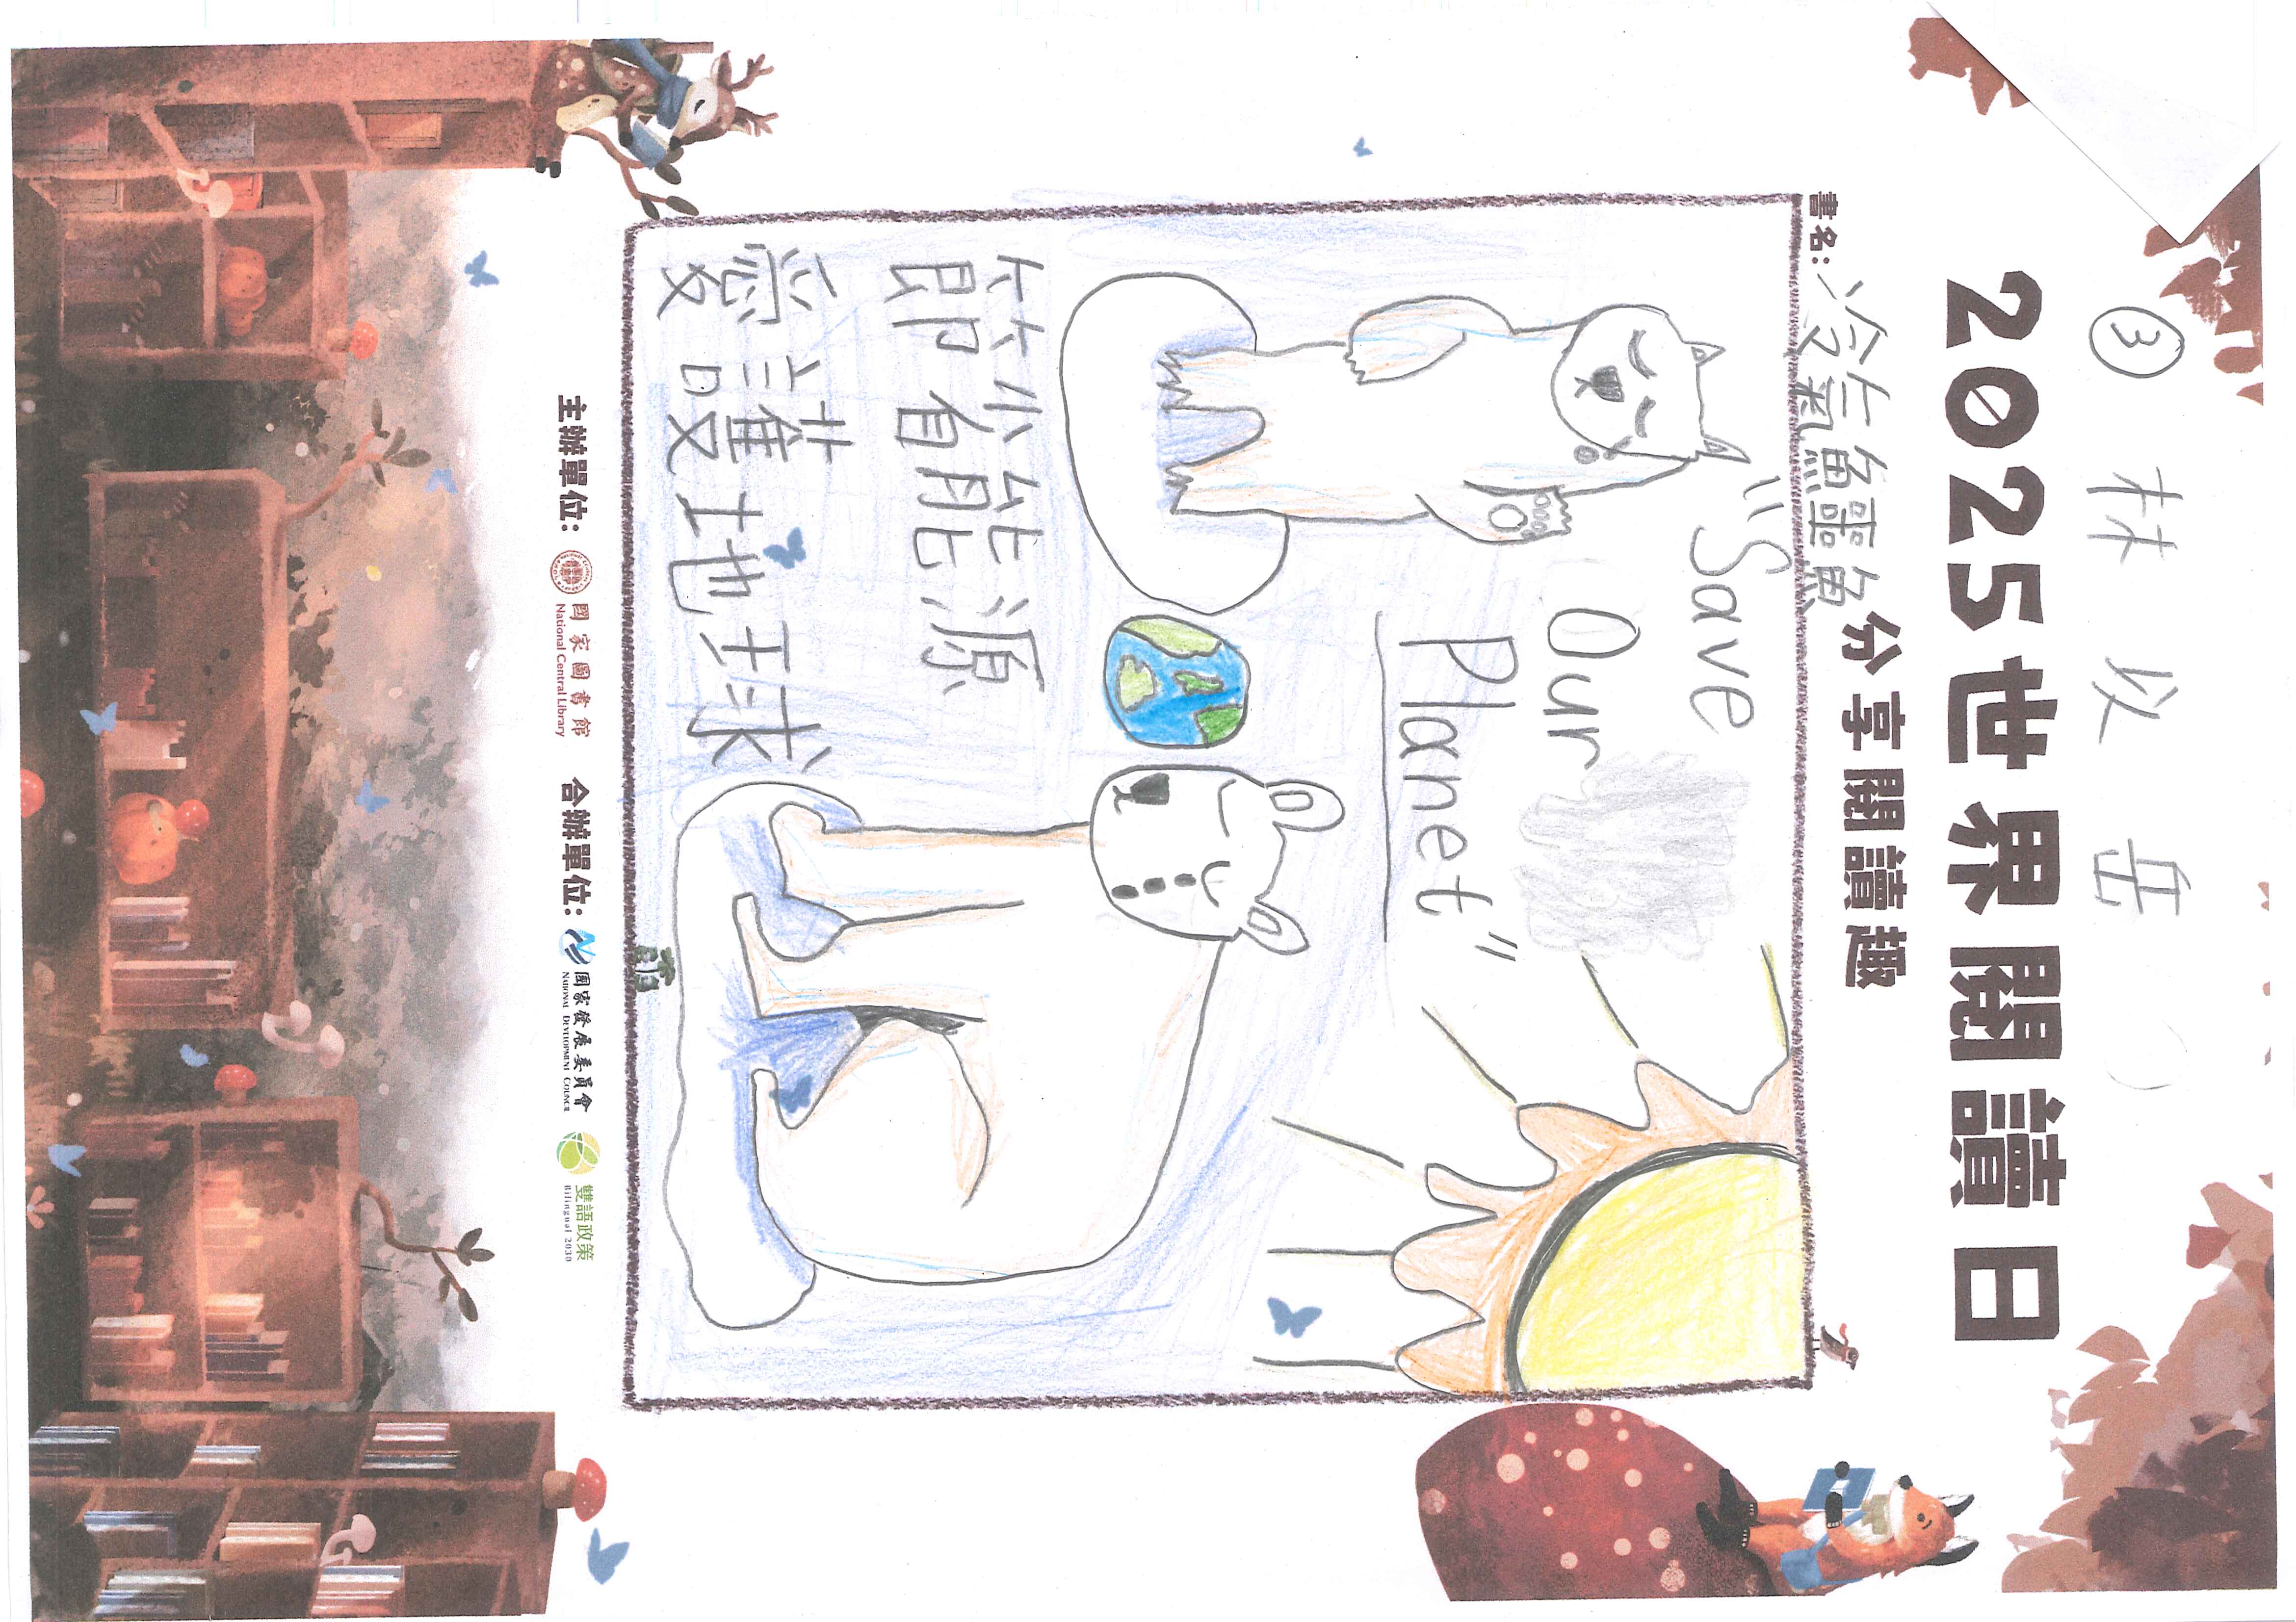 ③ 林以岳
2025世界閱讀日
分享閱讀趣
書名：冷氣鱷魚
"Save
Our
Planet"
節省能源
愛護地球
主辦單位： 國家圖書館 National Central Library 合辦單位： 國家發展委員會 NATIONAL DEVELOPMENT COUNCIL 雙語政策 Bilingual 2030